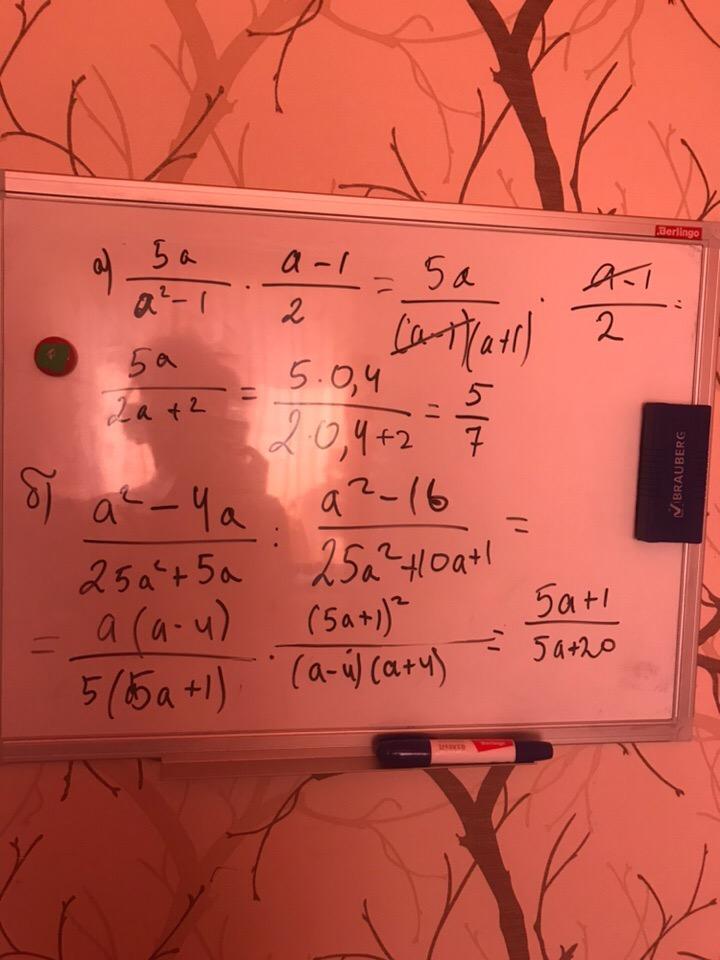 Berlingo
а) 5a/(a²-1) · (a-1)/2 = 5a/((a-1)(a+1)) · (a-1)/2 =
5a/(2a+2) = (5·0,4)/(2·0,4+2) = 5/7
BRAUBERG
б) (a²-4a)/(25a²+5a) : (a²-16)/(25a²+10a+1) =
= a(a-4)/(5(5a+1)) · (5a+1)²/((a-4)(a+4)) = (5a+1)/(5a+20)